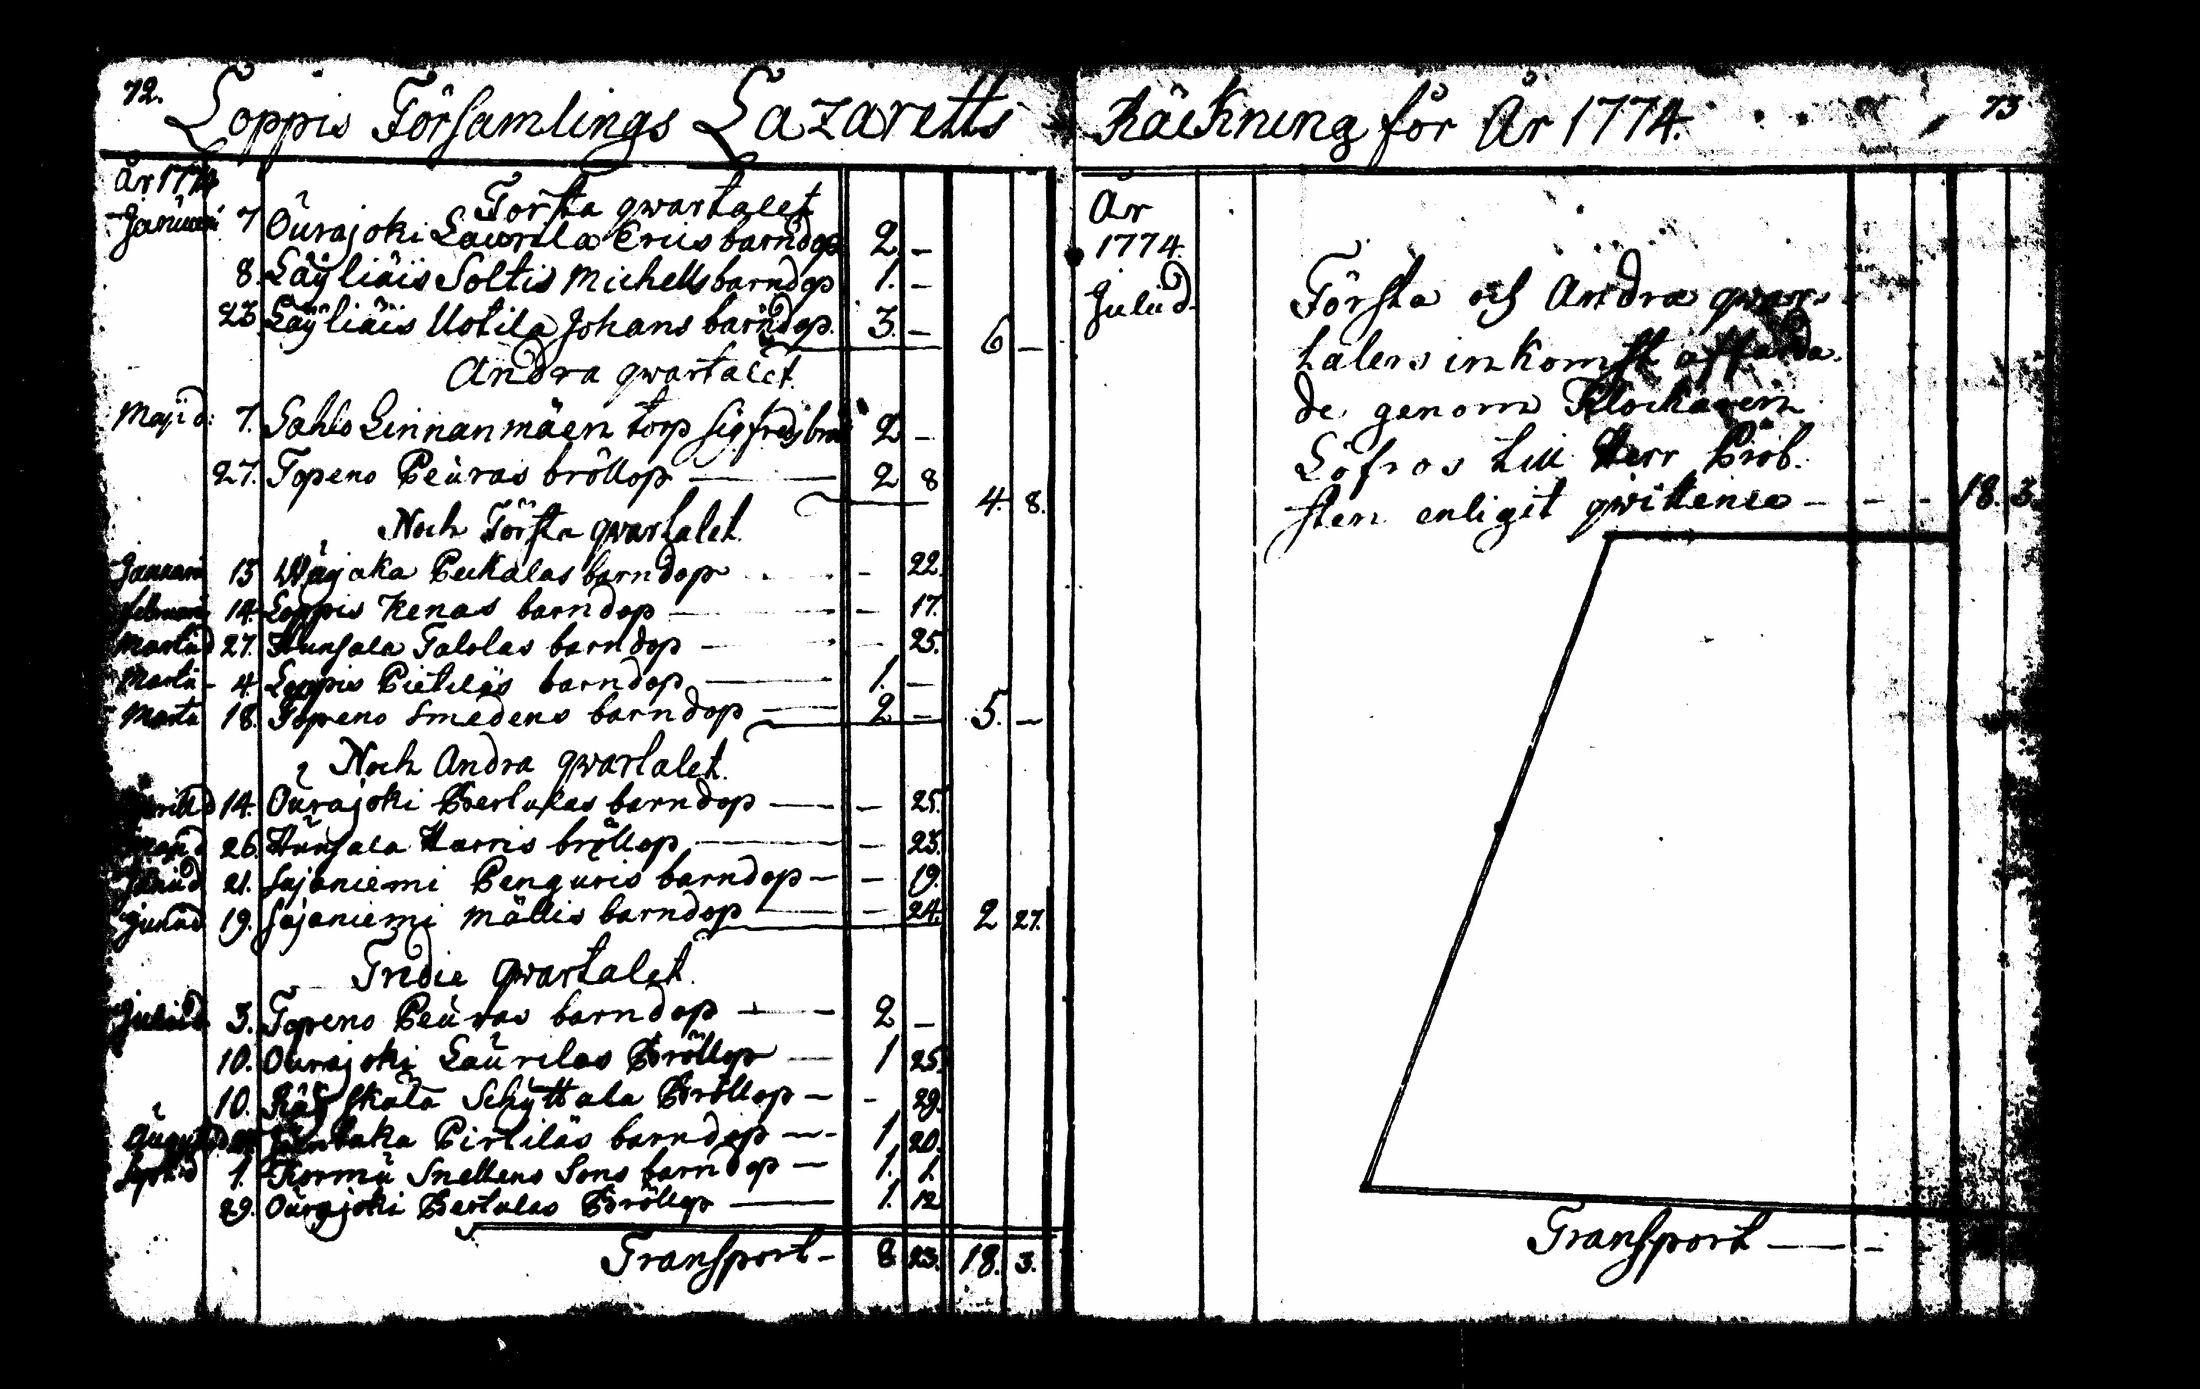 72.
Loppis Församlings Lazaretts
År 1774
Första qwartalet
Januari 7 Ourajoki Laurila Eriis barndop 2 -
8. Läyliäis Soltis Michells barndop 1. -
23 Läyliäis Uotila Johans barndop. 3. - 6 -
Andra qwartalet
Maji d: 7. Sahls Linnanmäen torp Sigfreds bröl 2 -
27. Topeno Peuras bröllop 2 8 4. 8.
Noch Första qwartalet
Januari 13 Wäjaka Peckalas barndop - 22.
februari 14. Loppis Kenas barndop - 17.
Martii d 27. Hunsala Talolas barndop - 25.
Martii - 4. Loppis Pietiläs barndop 1. -
Martii 18. Topeno Smedens barndop 2 - 5. -
Noch Andra qwartalet.
14. Ourajoki Bertulas barndop - 25.
Maji d 26. Hunsala Harris bröllop - 23.
Junii d 21. Sajaniemi Penguris barndop - 19.
Junii d 19. Sajaniemi Mällis barndop - 24. 2 27.
Tredie qwartalet.
Julii d 3. Topeno Peuras barndop 2 -
10. Ourajoki Laurilas Bröllop 1 25.
10. Schyttala Bröllop - 29.
Pirtiläs barndop 1 20.
1. Kormu Snellens Sons barndop 1. 1.
29. Ourajoki Bertulas Bröllop 1. 12
Transport - 8 23. 18. 3.
Räckning för År 1774.
73
År
1774.
Julii d.
Första och Andra qwar-
talers inkomst affärda-
de genom Klockaren
Löfros till Herr Prob-
sten enligit qwittence - - - 18. 3.
Transport